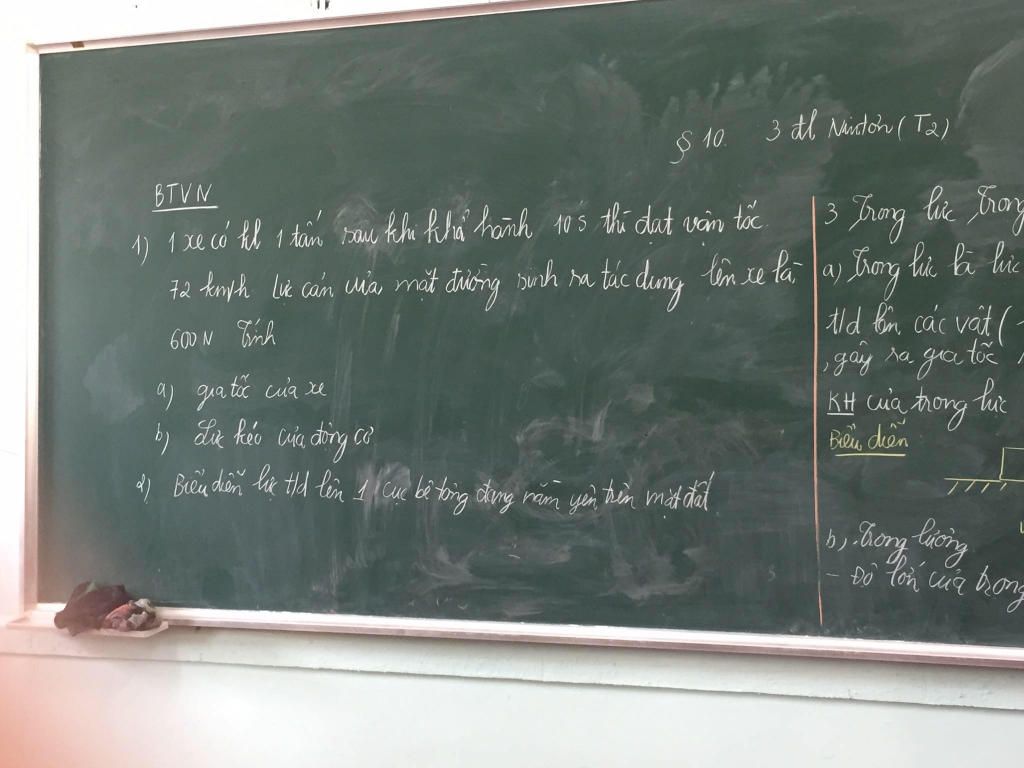 § 10. 3 đl Niutơn (T2)
BTVN
1) 1 xe có kl 1 tấn sau khi khởi hành 10s thì đạt vận tốc
72 km/h Lực cản của mặt đường sinh ra tác dụng lên xe là
600N Tính
a) gia tốc của xe
b) Lực kéo của động cơ
2) Biểu diễn lực t/d lên 1 cục bê tông đang nằm yên trên mặt đất
3 Trọng lực, Trọng
a) Trọng lực là lực
t/d lên các vật (
, gây ra gia tốc
KH của trọng lực
Biểu diễn
b, Trọng lượng
- Độ lớn của trọng